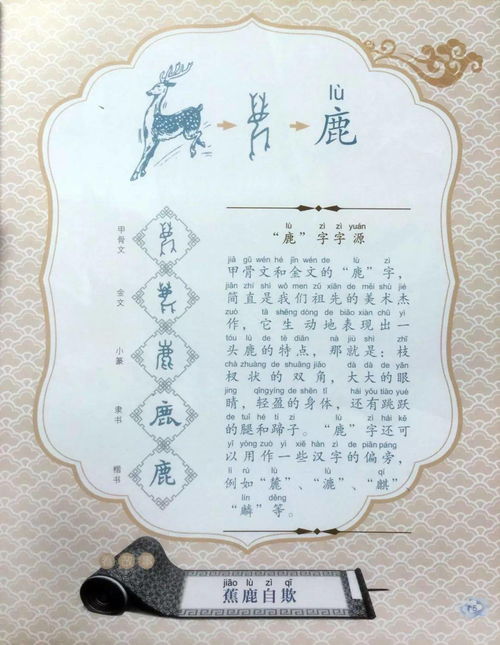 lù
鹿
甲骨文
金文
小篆
隶书
楷书
lù zì zì yuán
“鹿”字字源
jiǎ gǔ wén hé jīn wén de lù zì
甲骨文和金文的“鹿”字，
jiǎn zhí shì wǒ men zǔ xiān de měi shù jié
简直是我们祖先的美术杰
zuò tā shēng dòng de biǎo xiàn chū yì
作，它生动地表现出一
tóu lù de tè diǎn nà jiù shì zhī
头鹿的特点，那就是：枝
chà zhuàng de shuāng jiǎo dà dà de yǎn
杈状的双角，大大的眼
jing qīngyíng de shēn tǐ hái yǒu tiào yuè
睛，轻盈的身体，还有跳跃
de tuǐ hé tí zi lù zì hái kě
的腿和蹄子。“鹿”字还可
yǐ yòng zuò yì xiē hàn zì de piān páng
以用作一些汉字的偏旁，
lì rú lù lù qí
例如“麓”、“漉”、“麒”
lín děng
“麟”等。
jiāo lù zì qī
蕉鹿自欺